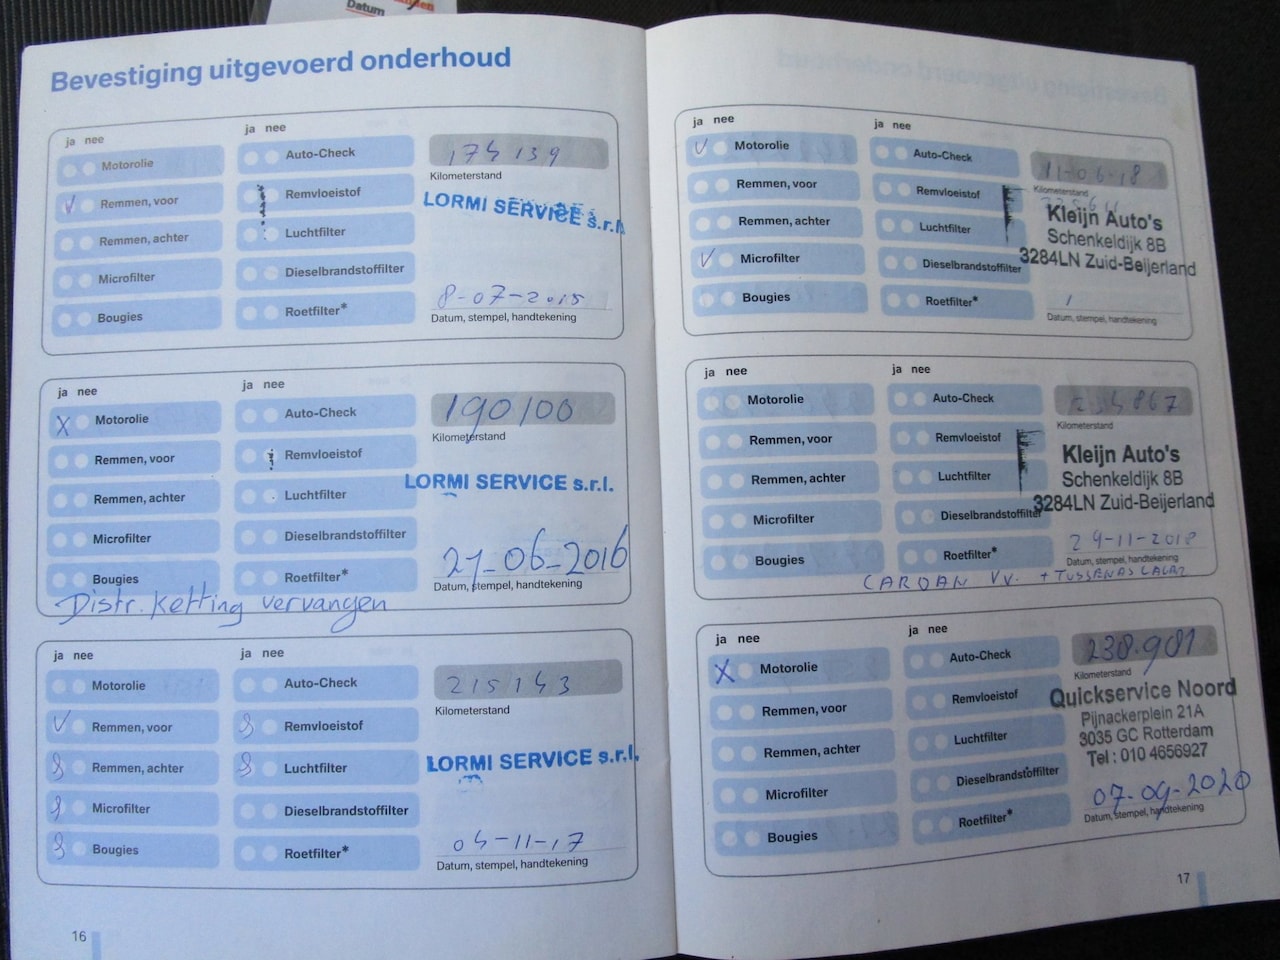 Datum
Bevestiging uitgevoerd onderhoud
ja nee
ja nee
Motorolie
Remmen, voor
Remmen, achter
Microfilter
Bougies
Auto-Check
Remvloeistof
Luchtfilter
Dieselbrandstoffilter
Roetfilter*
174139
Kilometerstand
LORMI SERVICE s.r.l.
8-07-2015
Datum, stempel, handtekening
ja nee
ja nee
X Motorolie
Remmen, voor
Remmen, achter
Microfilter
Bougies
Auto-Check
Remvloeistof
Luchtfilter
Dieselbrandstoffilter
Roetfilter*
190100
Kilometerstand
LORMI SERVICE s.r.l.
21-06-2016
Datum, stempel, handtekening
Distr. Ketting vervangen
ja nee
ja nee
Motorolie
Remmen, voor
Remmen, achter
Microfilter
Bougies
Auto-Check
Remvloeistof
Luchtfilter
Dieselbrandstoffilter
Roetfilter*
215143
Kilometerstand
LORMI SERVICE s.r.l.
04-11-17
Datum, stempel, handtekening
16
ja nee
ja nee
Motorolie
Remmen, voor
Remmen, achter
Microfilter
Bougies
Auto-Check
Remvloeistof
Luchtfilter
Dieselbrandstoffilter
Roetfilter*
Kilometerstand
Kleijn Auto's
Schenkeldijk 8B
3284LN Zuid-Beijerland
Datum, stempel, handtekening
ja nee
ja nee
Motorolie
Remmen, voor
Remmen, achter
Microfilter
Bougies
Auto-Check
Remvloeistof
Luchtfilter
Dieselbrandstoffilter
Roetfilter*
234867
Kilometerstand
Kleijn Auto's
Schenkeldijk 8B
3284LN Zuid-Beijerland
29-11-2018
Datum, stempel, handtekening
CARDAN VV. + TUSSENASLAGER
ja nee
ja nee
X Motorolie
Remmen, voor
Remmen, achter
Microfilter
Bougies
Auto-Check
Remvloeistof
Luchtfilter
Dieselbrandstoffilter
Roetfilter*
238.981
Kilometerstand
Quickservice Noord
Pijnackerplein 21A
3035 GC Rotterdam
Tel : 010 4656927
07-09-2020
Datum, stempel, handtekening
17